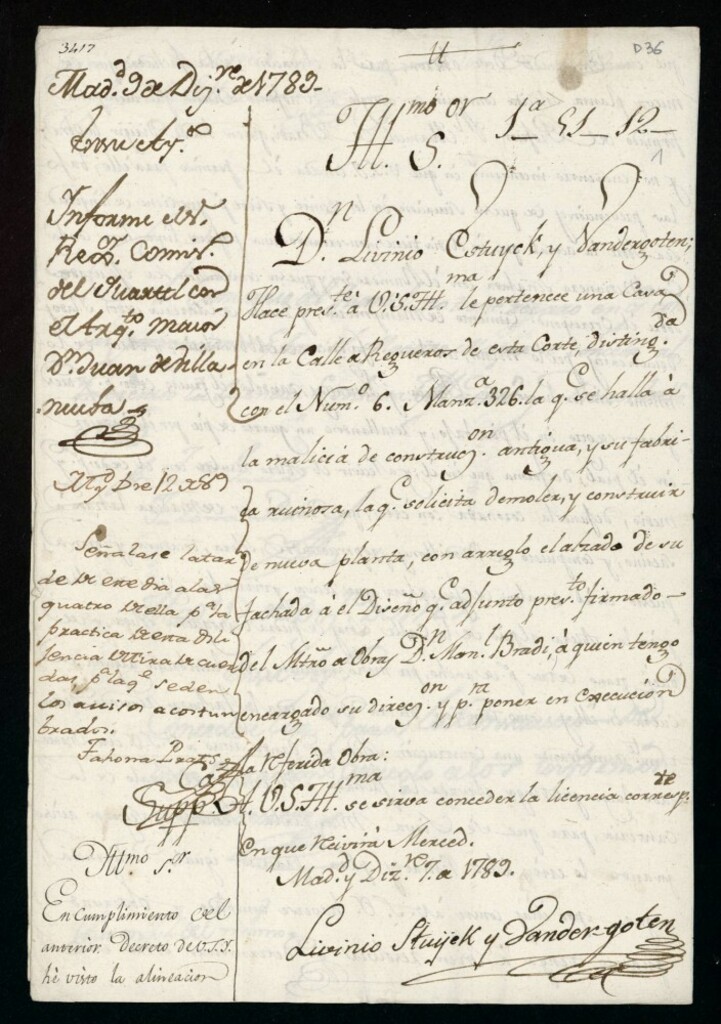 3417
D36
Mad.d 9 de Diz.re de 1789
Informe el S.r
Reg.or Comis.o
del Quartel con
el Arq.to maior
D.n Juan de Villa
nueba
Y Dre 12 de 89
Señalase la tar
de de este dia a las
quatro de ella p.a la
practica de esta dili
gencia de tira de cuer
das p.a la q.e se den
los avisos acostum
brados.
Yll.mo S.or
En cumplimiento del
anterior Decreto de V.S.Y.
hè visto la alineacion
1
Yll.mo S.or
D.n Livinio Estuyck, y Vandergoten;
Hace pres.te à V.S.Yll.ma le pertenece una Casa
en la Calle de Regueros de esta Corte, disting.da
con el Num.o 6. Manz.a 326. la q.e se halla à
la malicia de construcz.on antigua, y su fabri-
ca ruinosa, la q.e solicita demoler, y construir
de nueva planta, con arreglo el alzado de su
fachada à el Diseño q.e adjunto pres.to firmado
del Mtrõ de Obras D.n Man.l Bradi, à quien tengo
encargado su direcz.on y p.ra poner en execución
la referida Obra:
Supp.ca A. V.S.Yll.ma se sirva conceder la licencia corresp.te
en que recivirá Merced.
Mad.d y Diz.re 7. de 1789.
Livinio Stuyck y Vander-goten